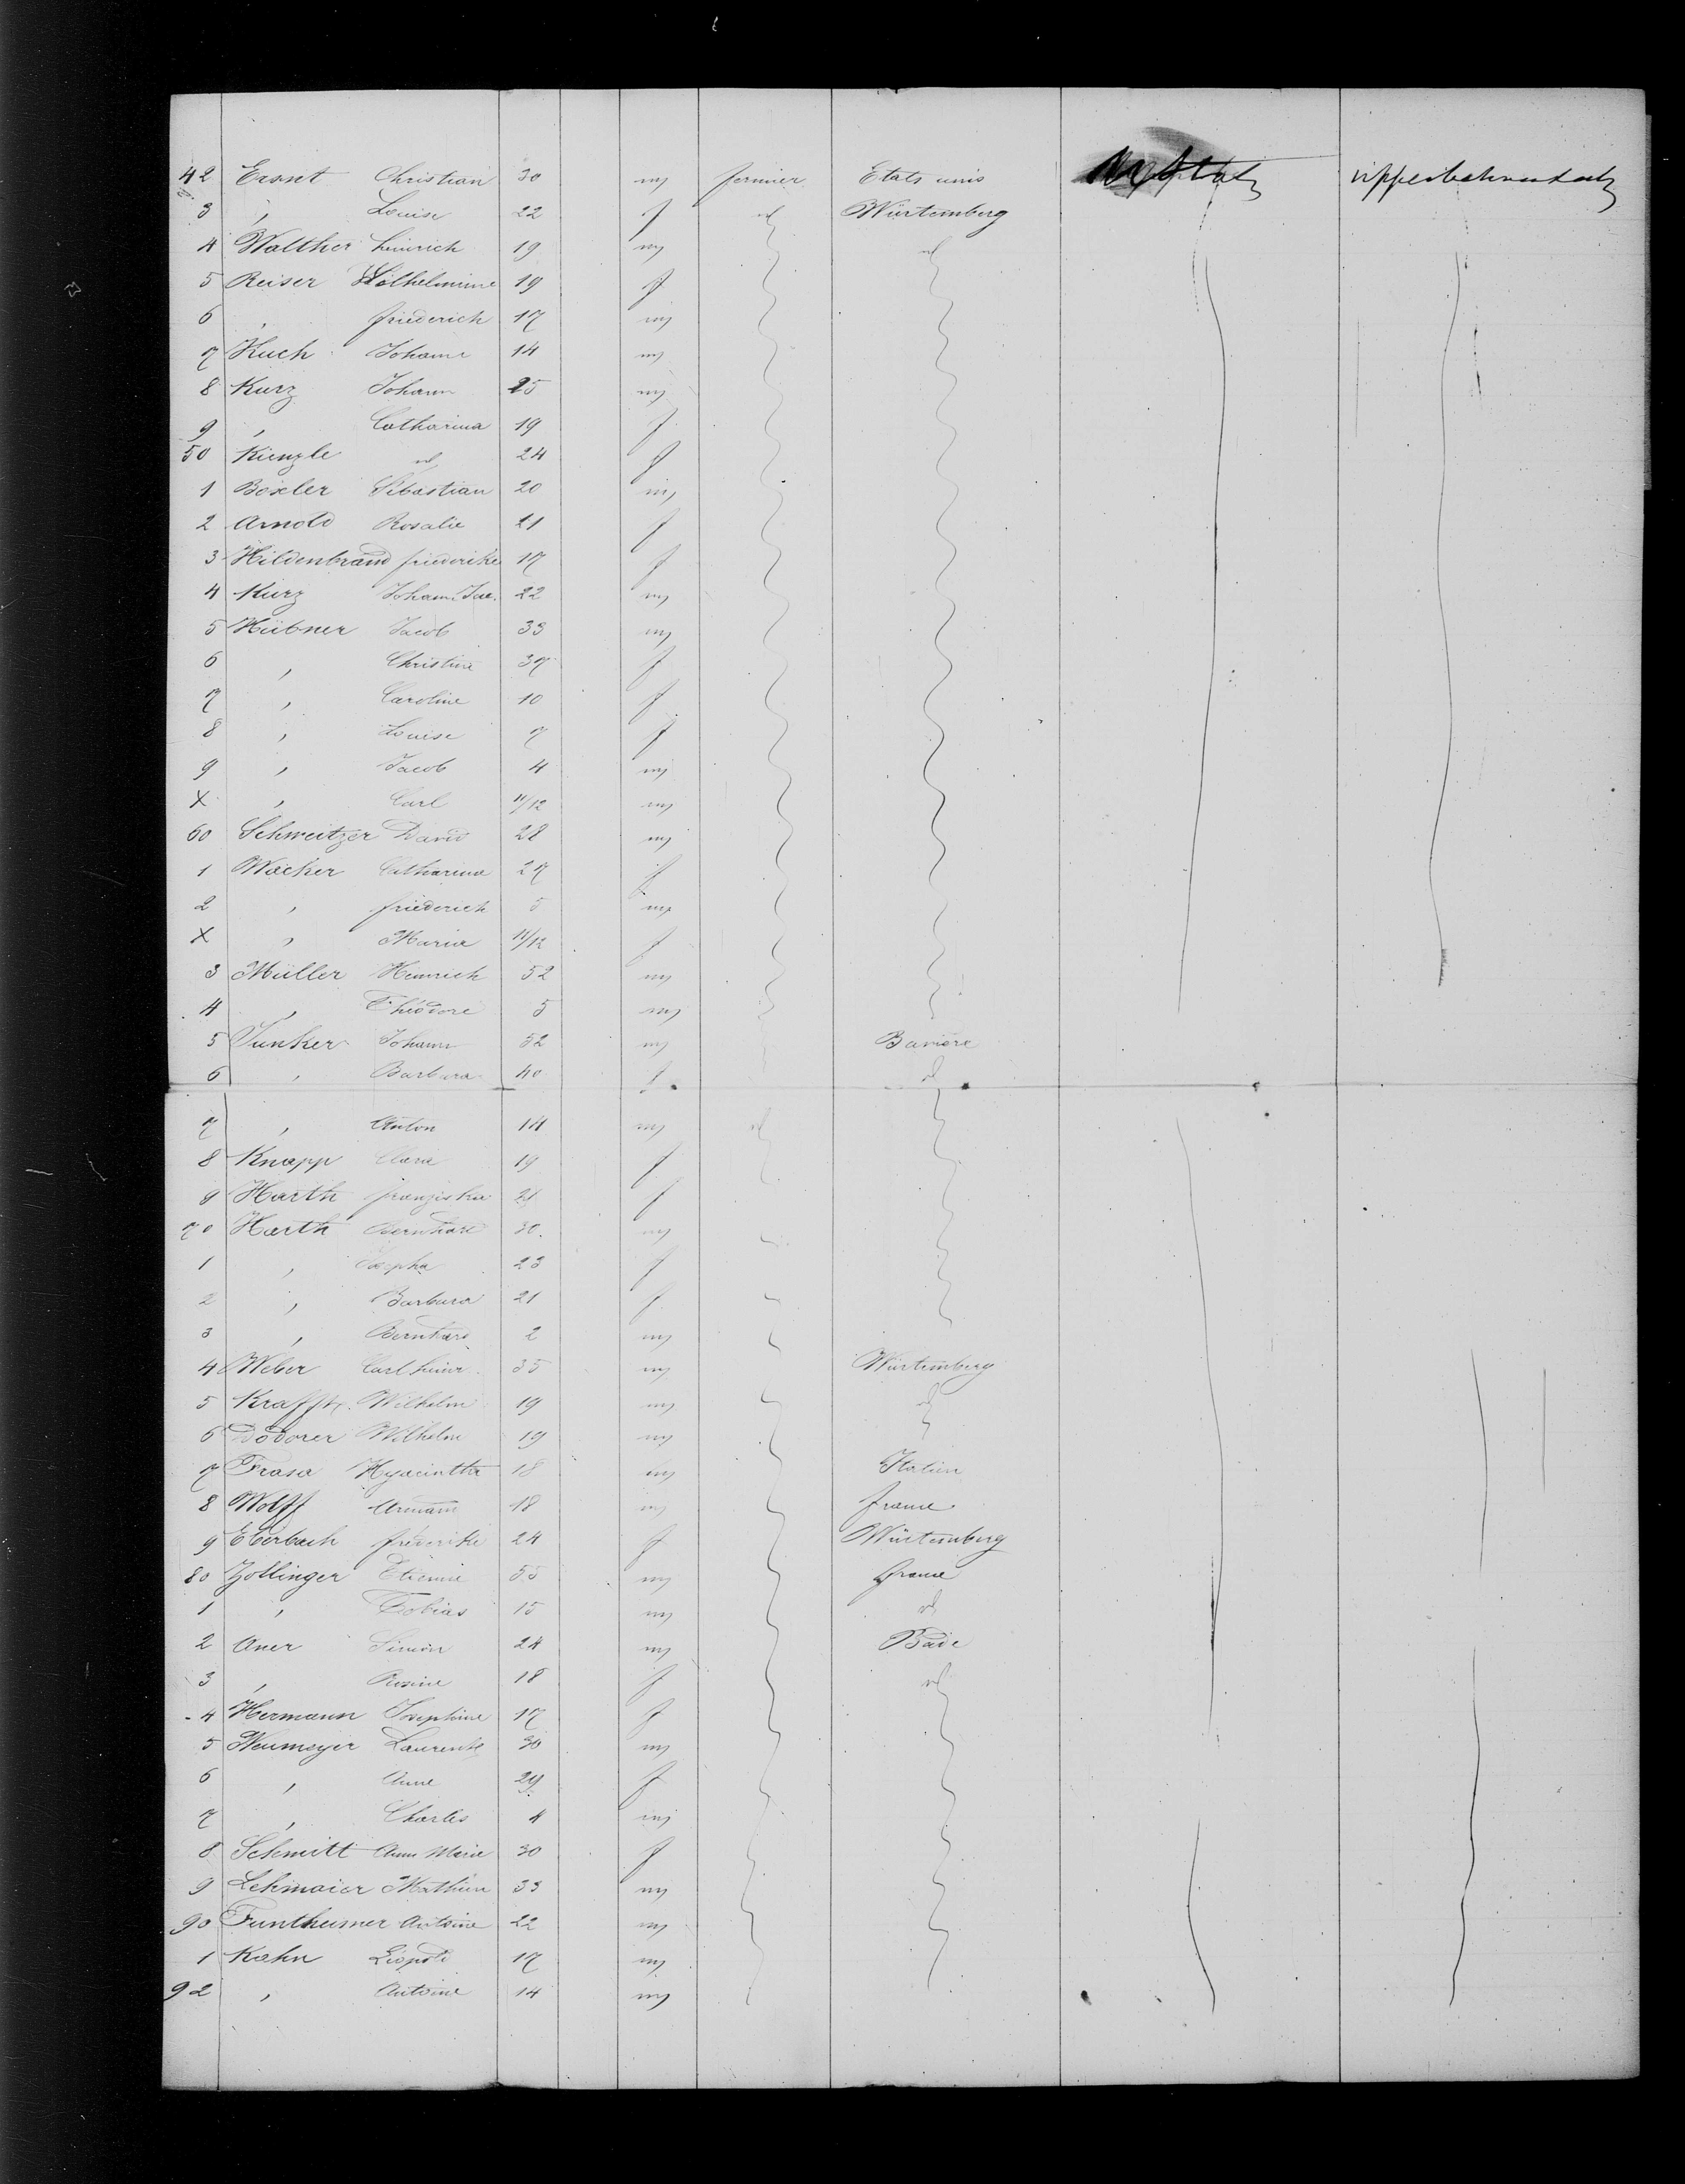 42 Ernst Christian 30 m fermier Etats unis
3 , Louise 22 f id Würtemberg
4 Walther heinrich 19 m id
5 Reiser Wilhelmine 19 f
6 , friederich 17 m
7 Kuch Johann 14 m
8 Kurz Johann 25 m
9 , Catharina 19 f
50 Kienzle id 24 f
1 Bixler Sebastian 20 m
2 Arnold Rosalie 21 f
3 Hildenbrand friederike 17 f
4 Kurz Johann Jac. 22 m
5 Hübner Jacob 33 m
6 , Christine 37 f
7 , Caroline 10 f
8 , Louise 7 f
9 , Jacob 4 m
X , Carl 11/12 m
60 Schweitzer David 28 m
1 Wacker Catharina 27 f
2 , friederich 5 m
X , Maria 11/12 f
3 Müller Heinrich 52 m
4 , Théodore 5 m
5 Junker Johann 52 m Bavière
6 , Barbara 40 f id
7 , Anton 14 m id
8 Knapp Clara 19 f
9 Harth franziska 21 f
70 Harth Bernhard 30 m
1 , Josepha 23 f
2 , Barbara 21 f
3 , Bernhard 2 m
4 Weber Carl heinr. 35 m Würtemberg
5 Krafft Wilhelm 19 m id
6 Dodorer Wilhelm 19 m
7 Frasa Hyacintha 18 m Italien
8 Wolff Armann 18 m france
9 Eberbach frederike 24 f Würtemberg
80 Zollinger Etienne 55 m france
1 , Tobias 15 m id
2 Auer Simon 24 m Bade
3 , Rosine 18 f id
4 Hermann Josephine 17 f
5 Neumeyer Laurent 30 m
6 , Anne 29 f
7 , Charles 4 m
8 Schmitt Anne Marie 30 f
9 Lehmaier Mathieu 33 m
90 Funthumer Antoine 22 m
1 Kahn Léopold 17 m
92 , Antoine 14 m